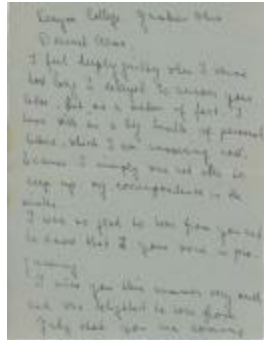 Kenyon College, Gambier Ohio
Dearest Anna,
I feel deeply guilty when I
how long I delayed to answer your
letter. But as a matter of fact, I
have still a big bundle of personal
letters, which I am answering now,
because I simply was not able to
keep up my correspondence in the
I was so glad to hear from you and
to know that your voice is
I miss you this summer very much
and was delighted to hear from
that you are coming